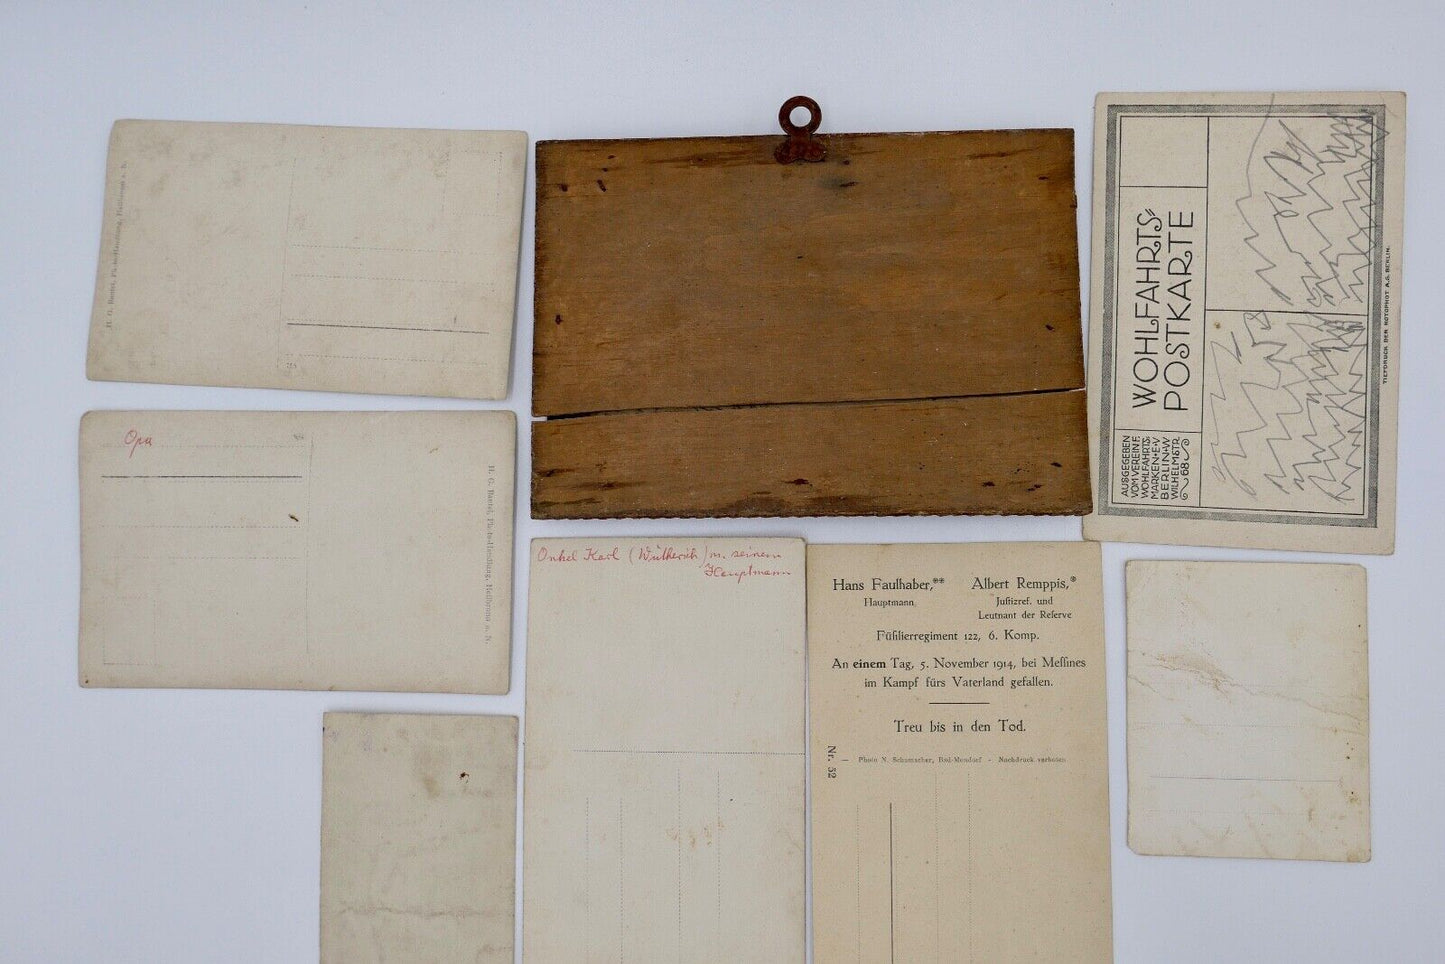 H. G. Bautel, Photo-Handlung, Heilbronn a. N.
WOHLFAHRTS=
POSTKARTE
AUSGEGEBEN
VOM VEREIN F.
WOHLFAHRTS-
MARKEN E.V
BERLIN·W
WILHELMSTR.
68
TIEFDRUCK DER ROTOPHOT A.G. BERLIN.
Opa
H. G. Bautel, Photo-Handlung, Heilbronn a. N.
Onkel Karl (Wütherich) m. seinem
Hauptmann
Hans Faulhaber,** Albert Remppis,*
Hauptmann, Juſtizref. und
Leutnant der Reſerve
Füſilierregiment 122, 6. Komp.
An einem Tag, 5. November 1914, bei Meſſines
im Kampf fürs Vaterland gefallen.
Treu bis in den Tod.
Nr. 52
Photo N. Schumacher, Bad-Mondorf - Nachdruck verboten